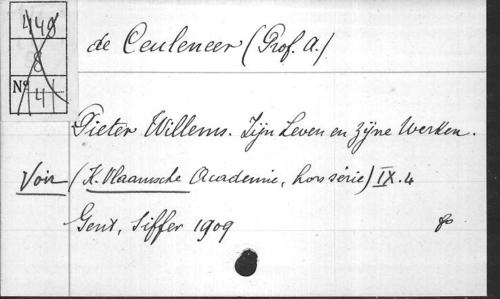 448
8
No 41
de Ceuleneer (Prof. A.)
Pieter Willems. Zijn Leven en Zijne Werken.
Voir (K. Vlaamsche Academie, hors série) IX. 4
Gent, Siffer 1909